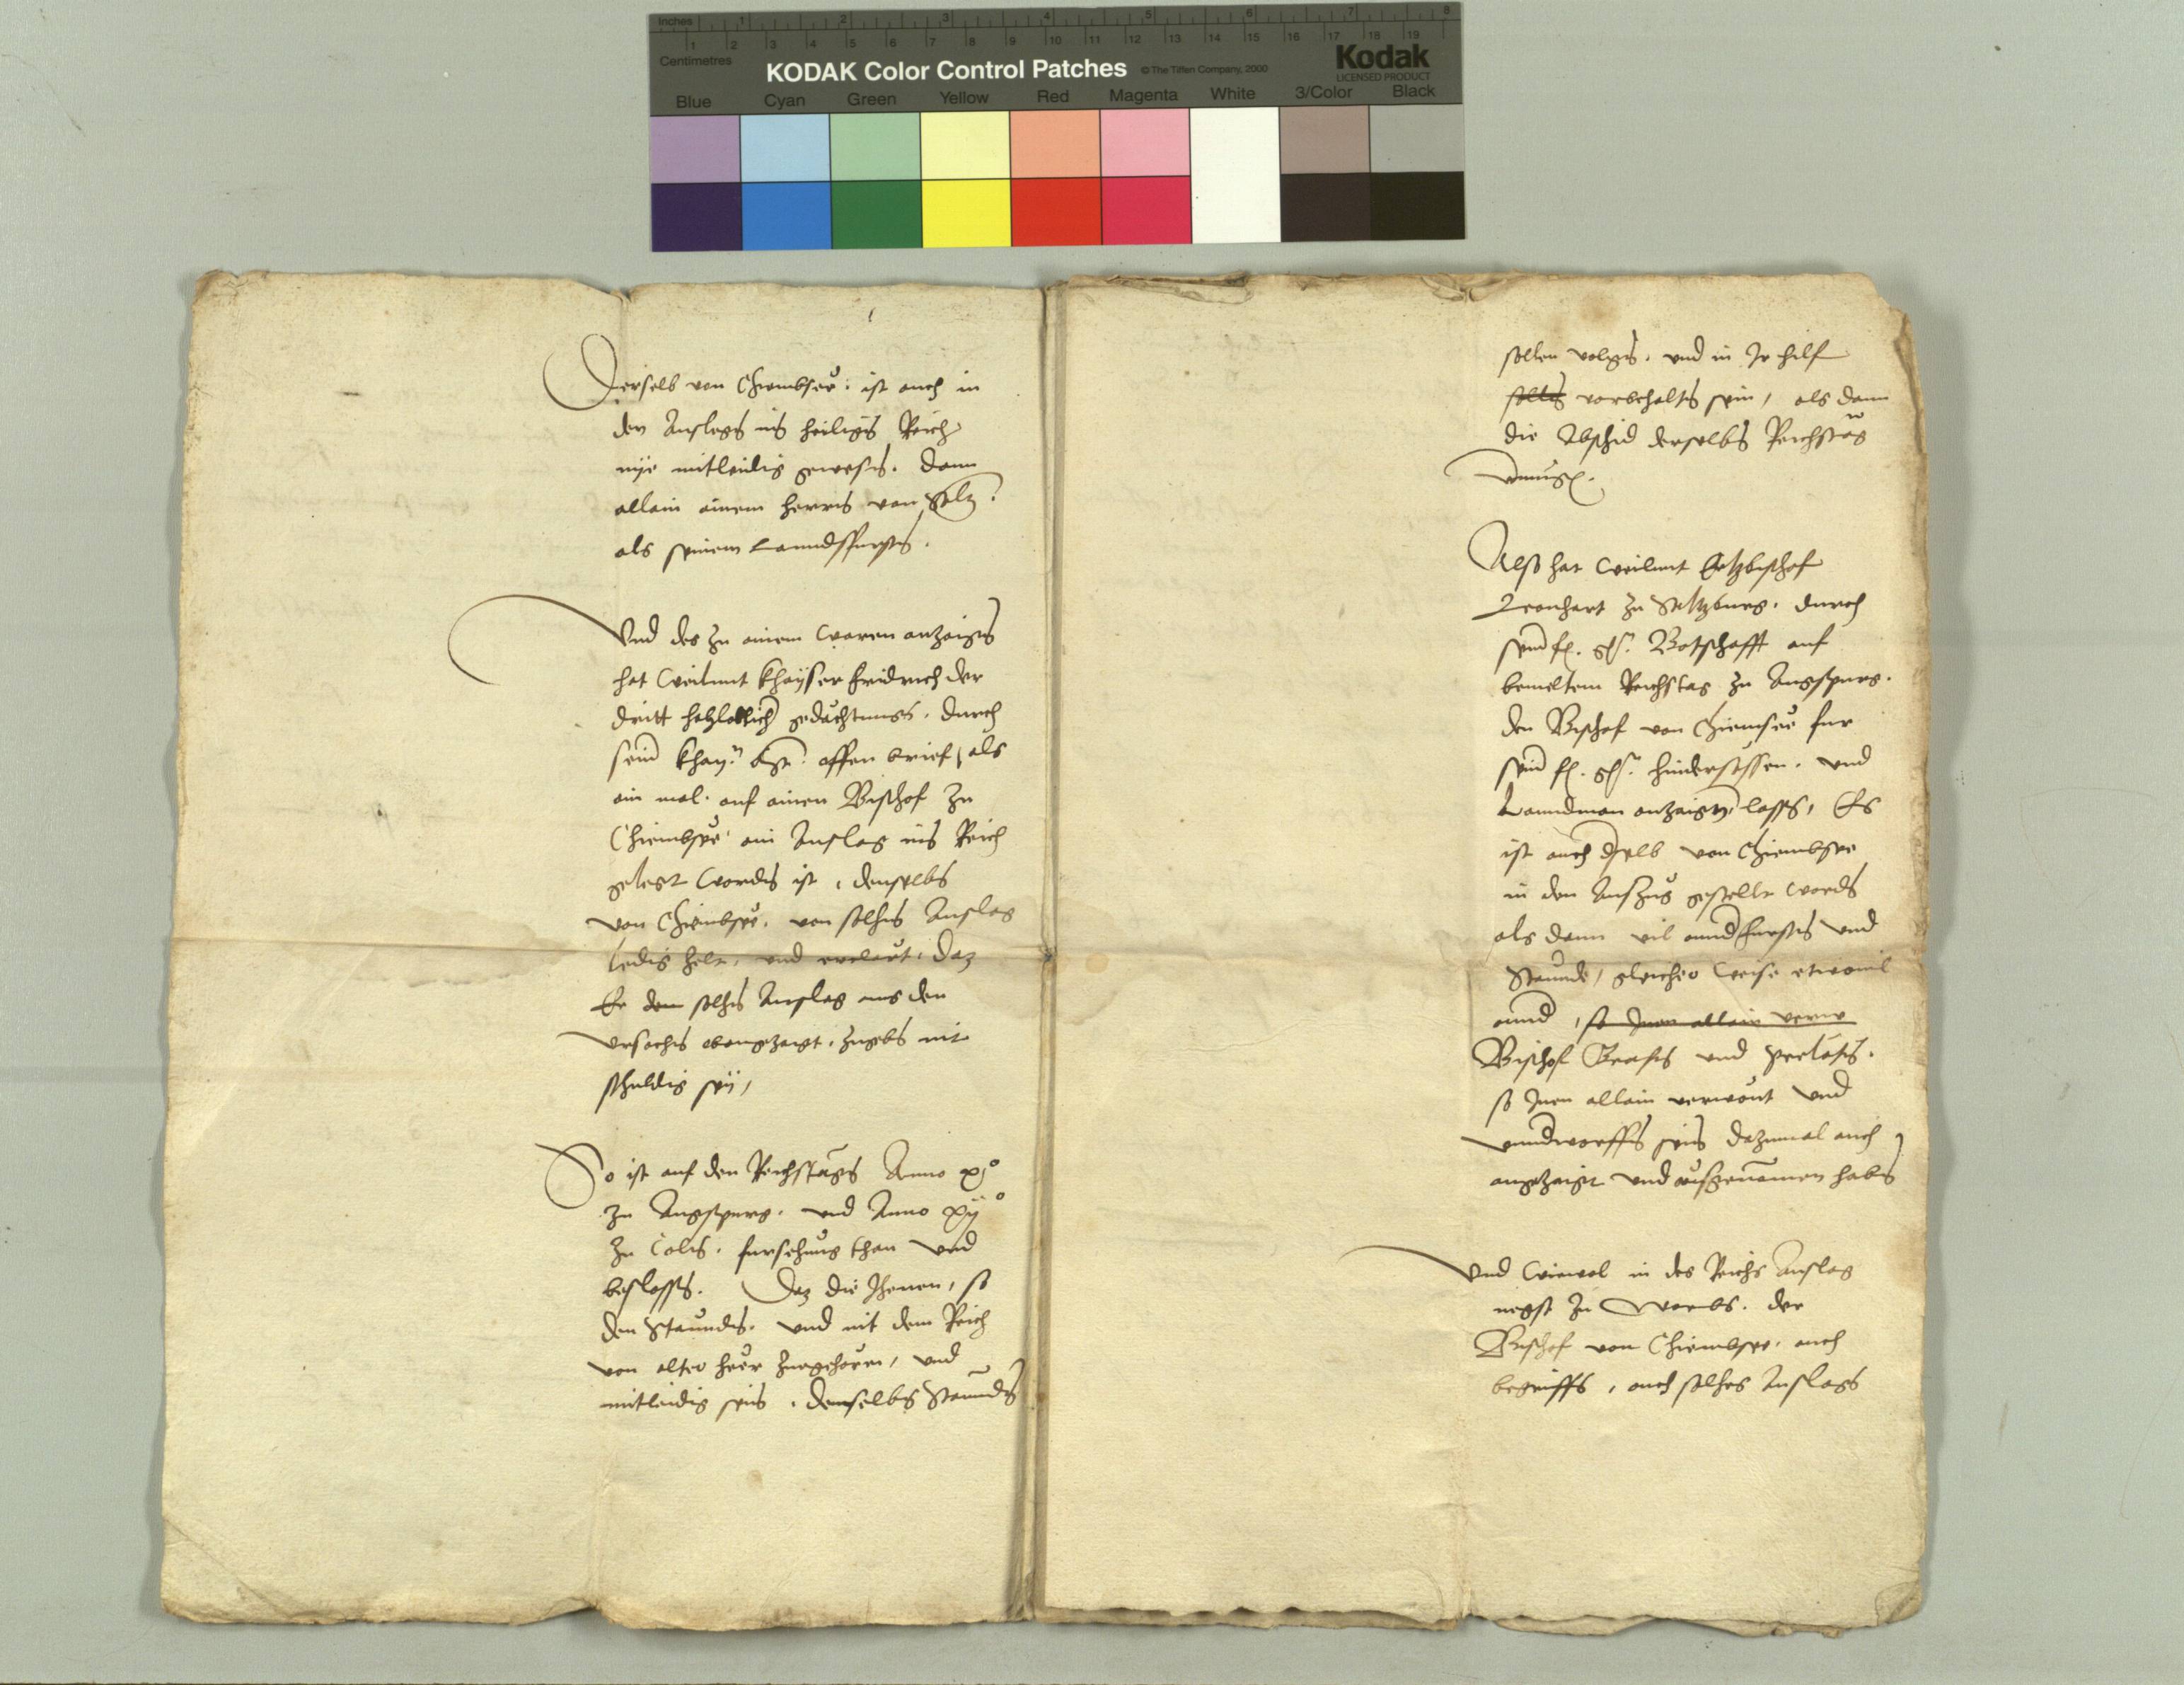 Inches 1 2 3 4 5 6 7 8
1 2 3 4 5 6 7 8 9 10 11 12 13 14 15 16 17 18 19
Centimetres
KODAK Color Control Patches © The Tiffen Company, 2000 Kodak
LICENSED PRODUCT
Blue Cyan Green Yellow Red Magenta White 3/Color Black
Derselb von Chiembsee: ist auch in
den Anslegn ins heiligen Reich
nye mitleidig gewesen. dann
allain ainem herren von Saltz:
als seinem Lanndsfursten.
Vnd des zu ainem waren antzaigen
hat weilent khayser fridrich der
dritt gedächtnuss. durch
sein khay: offen brief, als
ain mal. auf ainen Bischof zu
Chiembsee ain Anslag ins Reich
gelegt worden ist, denselben
von Chiembsee. von solhen Anslag
ledig helt. und erclert. daz
Er dem solhen Anslag aus den
vrsachen obangezaigt. zugeben nit
schuldig sey,
So ist auf den Reichstägen Anno xº
zu Augspurg. und Anno xijº
zu Cöln. fursehung than und
beslossen. Daz die Jhenen, so
den Stännden. vnd nit dem Reich
von alter heer zuegehören, vnd
mitleidig sein. denselben Stännden
sollen volgen. und in Ir hilf
sollen vorbehalten sein, als dann
die Abschid derselben Reichstäg
vermügen.
Also hat weilent Ertzbischof
Leonhart zu Saltzburg. durch
sein f. g. Botschafft auf
bemeltem Reichstag zu Augspurg.
den Bischof von Chiemsee fur
sein f. g. hindersessen. und
Lanndman antzaigen lassen, Es
ist auch derselb von Chiembsee
in den Auszug gestellt worden
als dann vil annder fursten und
Stännde, gleicher weise etwovil
annder, so Inen allain verw
Bischof Grafen und prelaten.
so Inen allain verwont und
vnnderworffen sein dazumal auch
angezaigt und ausgenomen haben
Vnd wiewol in des Reichs Anslag
negst zu Wormbs. der
Bischof von Chiembsee. auch
begriffen, auch solhes Anslags